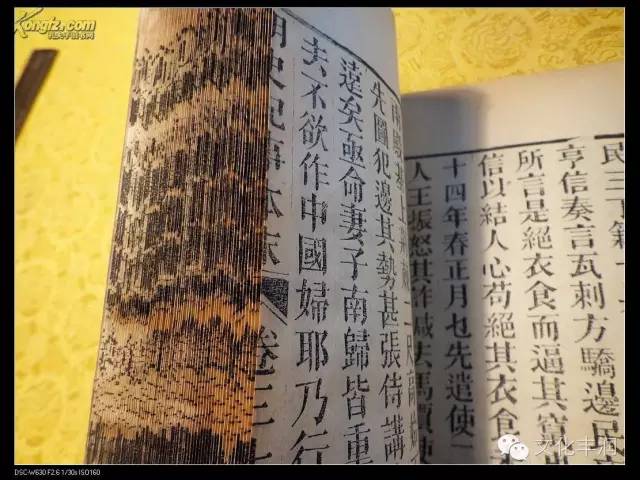 Kongfz.com
孔夫子旧书网
亨信奏言瓦剌方驕邊民
所言是絕衣食而逼其竄
信以結人心苟絕其衣食
十四年春正月也先遣使
人王振怒其詐減去馬價使
先圖犯邊其勢甚張侍講
遠矣亟命妻子南歸皆重
去不欲作中國婦耶乃行
明史紀事本末 卷三十
文化丰润
DSC-W630 F2.6 1/30s ISO160